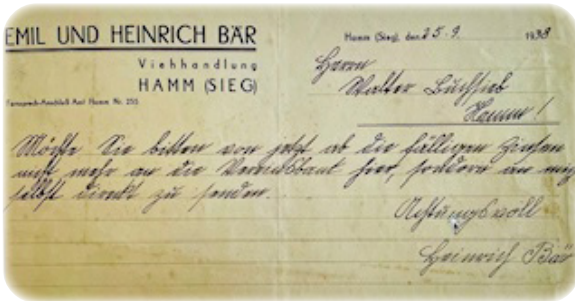 EMIL UND HEINRICH BÄR
Viehhandlung
HAMM (SIEG)
Fernsprech-Anschluß Amt Hamm Nr. 255
Hamm (Sieg), den 25. 9. 1938
Herrn
Walter
Hamm!
Möchte Sie bitten von jetzt ab die fälligen Zinsen
nicht mehr an die Vereinsbank hier, sondern an mich
selbst direkt zu senden.
Achtungsvoll
Heinrich Bär